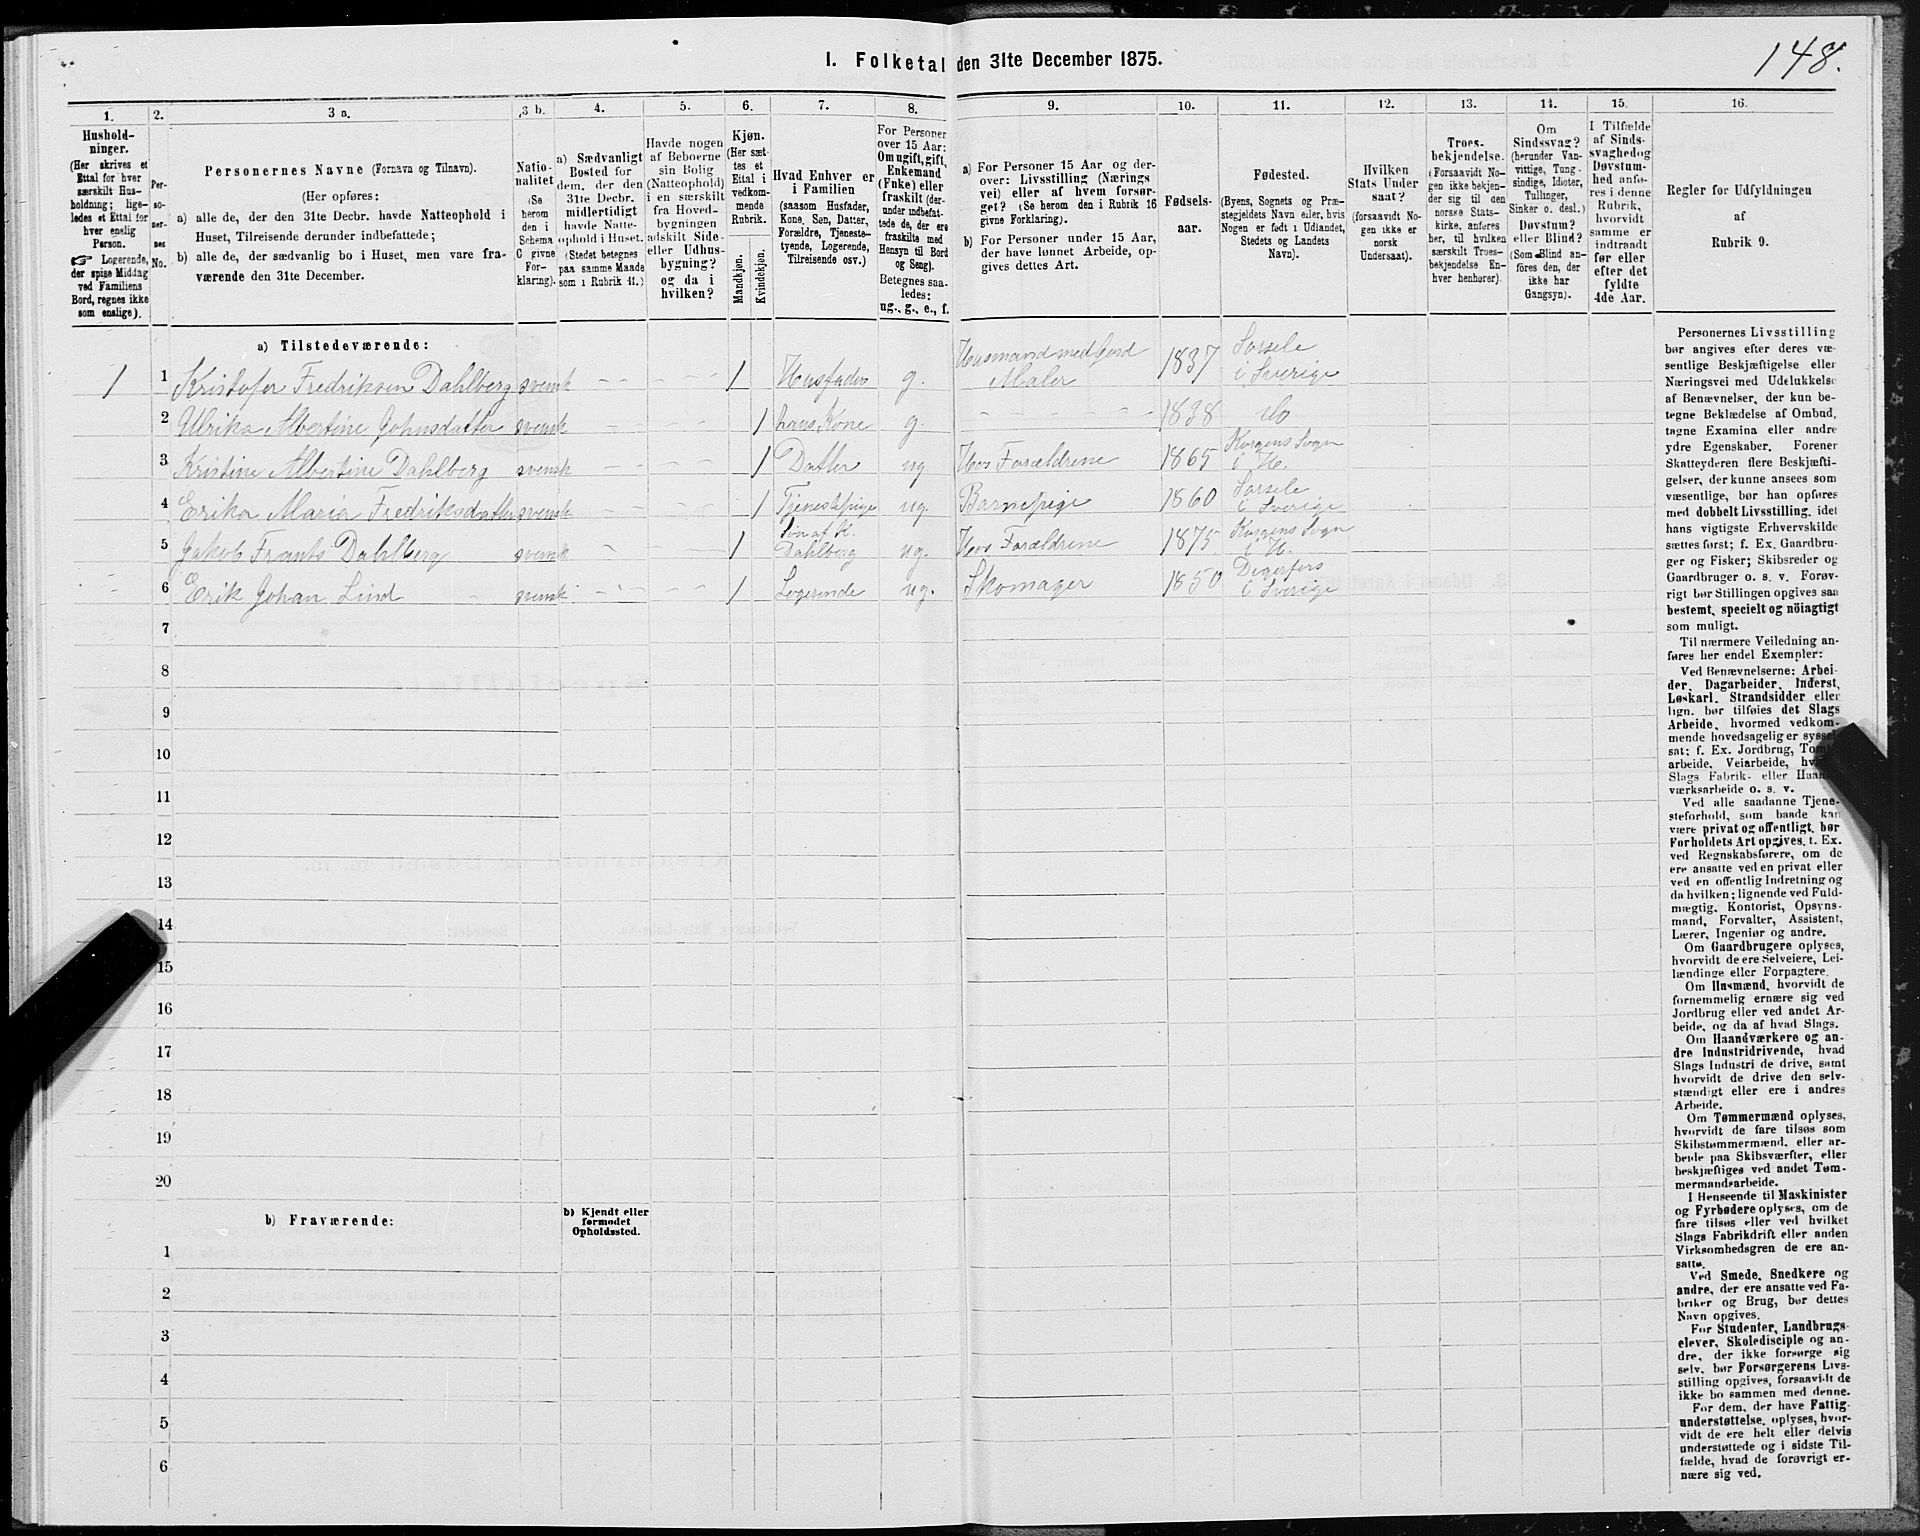 148.
1. Folketal den 31te December 1875.
1. 2. 3 a. 3 b. 4. 5. 6. 7. 8. 9. 10. 11. 12. 13. 14. 15. 16.
Hushold-
ninger.
(Her skrives et
Ettal for hver
særskilt Hus-
holdning; lige-
ledes et Ettal for
hver enslig
Person.
☞ Logerende,
der spise Middag
ved Familiens
Bord, regnes ikke
som enslige).
Per-
so-
ner-
nes
No.
Personernes Navne (Fornavn og Tilnavn).
(Her opføres:
a) alle de, der den 31te Decbr. havde Natteophold i
Huset, Tilreisende derunder indbefattede;
b) alle de, der sædvanlig bo i Huset, men vare fra-
værende den 31te December.
Natio-
nalitet
(Se
herom
den i
Schema
C givne
For-
klaring).
a) Sædvanligt
Bosted for
dem, der den
31te Decbr.
midlertidigt
havde Natte-
ophold i Huset.
(Stedet betegnes
paa samme Maade
som i Rubrik 11.)
Havde nogen
af Beboerne
sin Bolig
(Natteophold)
i en særskilt
fra Hoved-
bygningen
adskilt Side-
eller Udhus-
bygning?
og da i
hvilken?
Kjøn.
(Her sæt-
tes et
Ettal i
vedkom-
mende
Rubrik.
Mandkjøn.
Kvindekjøn.
Hvad Enhver er
i Familien
(saasom Husfader,
Kone, Søn, Datter,
Forældre, Tjeneste-
tyende, Logerende,
Tilreisende osv.)
For Personer
over 15 Aar:
Om ugift, gift,
Enkemand
(Enke) eller
fraskilt (der-
under indbefat-
tede de, der ere
fraskilte med
Hensyn til Bord
og Seng).
Betegnes saa-
ledes:
ug., g., e., f.
a) For Personer 15 Aar og der-
over: Livsstilling (Nærings
vei) eller af hvem forsør-
get? (Se herom den i Rubrik 16
givne Forklaring).
b) For Personer under 15 Aar,
der have lønnet Arbeide, op-
gives dettes Art.
Fødsels-
aar.
Fødested.
(Byens, Sognets og Præ-
stegjeldets Navn eller, hvis
Nogen er født i Udlandet,
Stedets og Landets
Navn).
Hvilken
Stats Under
saat?
(forsaavidt No-
gen ikke er
norsk
Undersaat).
Troes-
bekjendelse.
(Forsaavidt No-
gen ikke bekjen-
der sig til den
norske Stats-
kirke, anføres
her, til hvilken
særskilt Troes-
bekjendelse En-
hver henhører).
Om
Sindssvag?
(herunder Van-
vittige, Tung-
sindige, Idioter,
Tullinger,
Sinker o. desl.)
Døvstum?
eller Blind?
(Som Blind an-
føres den, der
ikke har
Gangsyn).
I Tilfælde
af Sinds-
svaghed og
Døvstum-
hed anfø-
res i denne
Rubrik,
hvorvidt
samme er
indtraadt
før eller
efter det
fyldte
4de Aar.
Regler for Udfyldningen
af
Rubrik 9.
a) Tilstedeværende:
1 1 Kristofer Fredriksen Dahlberg svensk - - - - 1 Husfader g. Husmand med Jord Maler 1837 Sorsele i Sverige
2 Ulrika Albertine Johnsdatter svensk - - - - 1 hans Kone g. - - - - 1838 do
3 Kristine Albertine Dahlberg svensk - - - - 1 Datter ug Hos Forældrene 1865 Korgens Sogn i H.
4 Erika Maria Fredriksdatter svensk - - - - 1 Tjenestepige ug. Barnepige 1860 Sorsele i Sverige
5 Jakob Frants Dahlberg svensk - - - - 1 Søn af K. Dahlberg ug. Hos Forældrene 1875 Korgens Sogn i H.
6 Erik Johan Lind svensk - - - - 1 Logerende ug. Skomager 1850 Degerfors i Sverige
7
8
9
10
11
12
13
14
15
16
17
18
19
20
b) Fraværende:
b) Kjendt eller
formodet
Opholdssted.
1
2
3
4
5
6
Personernes Livsstilling
bør angives efter deres væ-
sentlige Beskjæftigelse eller
Næringsvei med Udelukkelse
af Benævnelser, der kun be-
tegne Beklædelse af Ombud,
tagne Examina eller andre
ydre Egenskaber. Forener
Skatteyderen flere Beskjæfti-
gelser, der kunne ansees som
væsentlige, bør han opføres
med dobbelt Livsstilling, idet
hans vigtigste Erhvervskilde
sættes først; f. Ex. Gaardbru-
ger og Fisker; Skibsreder og
Gaardbruger o. s. v. Forøv-
rigt bør Stillingen opgives saa
bestemt, specielt og nöiagtigt
som muligt.
Til nærmere Veiledning an-
føres her endel Exempler:
Ved Benævnelserne: Arbei-
der, Dagarbeider, Inderst,
Løskarl, Strandsidder eller
lign. bør tilføies det Slags
Arbeide, hvormed vedkom-
mende hovedsagelig er syssel-
sat; f. Ex. Jordbrug, Tomt-
arbeide, Veiarbeide, hvad
Slags Fabrik- eller Haand-
værksarbeide o. s. v.
Ved alle saadanne Tjene-
steforhold, som baade kan
være privat og offentligt, bør
Forholdets Art opgives, f. Ex.
ved Regnskabsførere, om de
ere ansatte ved en privat eller
ved en offentlig Indretning og
da hvilken; lignende ved Fuld-
mægtig, Kontorist, Opsyns-
mand, Forvalter, Assistent,
Lærer, Ingeniør og andre.
Om Gaardbrugere oplyses,
hvorvidt de ere Selveiere, Lei-
lændinge eller Forpagtere.
Om Husmænd, hvorvidt de
fornemmelig ernære sig ved
Jordbrug eller ved andet Ar-
beide, og da af hvad Slags.
Om Haandværkere og an-
dre Industridrivende, hvad
Slags Industri de drive, samt
hvorvidt de drive den selv-
stændigt eller ere i andres
Arbeide.
Om Tømmermænd oplyses,
hvorvidt de fare tilsøs som
Skibstømmermænd, eller ar-
beide paa Skibsværfter, eller
beskjæftiges ved andet Tøm-
mermandsarbeide.
I Henseende til Maskinister
og Fyrbødere oplyses, om de
fare tilsøs eller ved hvilket
Slags Fabrikdrift eller anden
Virksomhedsgren de ere an-
satte.
Ved Smede, Snedkere og
andre, der ere ansatte ved Fa-
briker og Brug, bør dettes
Navn opgives.
For Studenter, Landbrugs-
elever, Skoledisciple og an-
dre, der ikke forsørge sig
selv, bør Forsørgerens Livs-
stilling opgives, forsaavidt de
ikke bo sammen med denne.
For dem, der have Fattig-
understøttelse, oplyses, hvor-
vidt de ere helt eller delvis
understøttede og i sidste Til-
fælde, hvad de forøvrigt er-
nære sig ved.